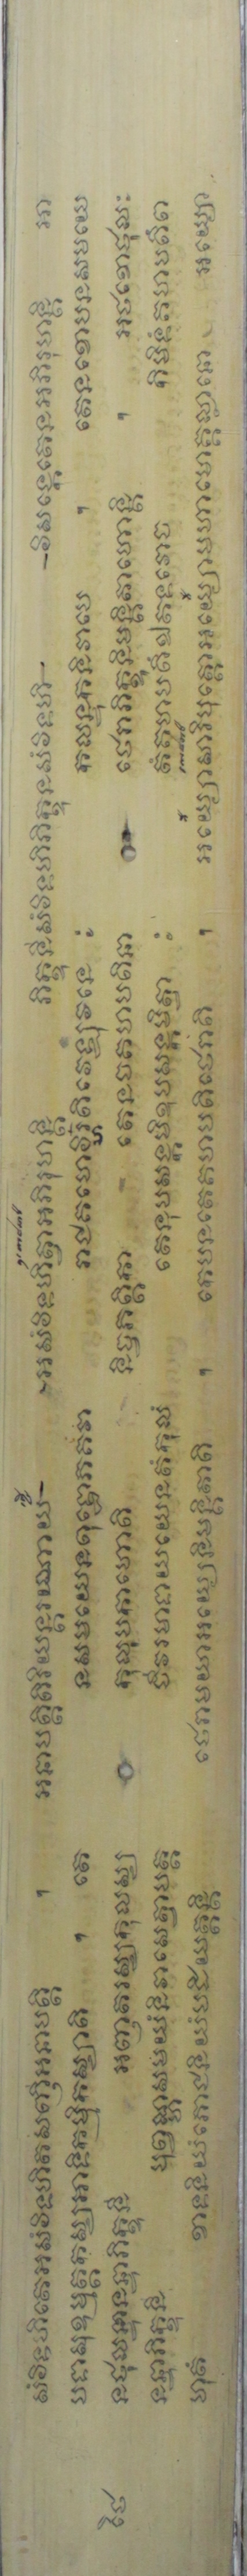 សំវិទហិតេអសំវិទហិតសញ្ញីអនាបត្តិ ។ អនាបត្តិតិរិយន្តរណាយ អសំវិទហិត្វាអភិរុហន្តិ ភិក្ខុនីសំវិទហិភិក្ខុនសំវិទហិ វិសង្កេតេនអភិរុហន្តិ អា
បទាសុឧម្មត្តកស្សអាទិកម្មិកស្សាតិ ។ តេ នសមយេនពុទ្ធោភគវា រាជគហេវិហរតិវេឡុវនេ ះ កលន្ទកនិវាបេ ។ តេនខោបនសមយេ
នថុលនន្ទាភិក្ខុនី អញ្ញតរស្សកុលស្ស កុលុបកាហោតិ និច្ចភត្តិកា តេនចគហបតិនា ថេរាភិក្ខូនិមន្តិតាហោន្តិ ។ អថខោថុលះ
នន្ទាភិក្ខុនី បុព្វណ្ហសមយំនិវាសេត្វាបត្ត ចីវរមាទាយយេនតំកុលំ តេនុបសង្កមិឧបសង្កមិត្វា ះ តំគហបតឹឯតទវោច កិមិទំគហបតិព
ហុតំ ខាទនិយំភោជនិយំបដិយត្តន្តិ ថេរាមយាអយ្យេនិមន្តិតាតិ ។ កេបនតេគហបតិថេរាតិ ។ អយ្យោសារិបុត្តោអយ្យោមហាមោគ្គល្លានោ អយ្យោ